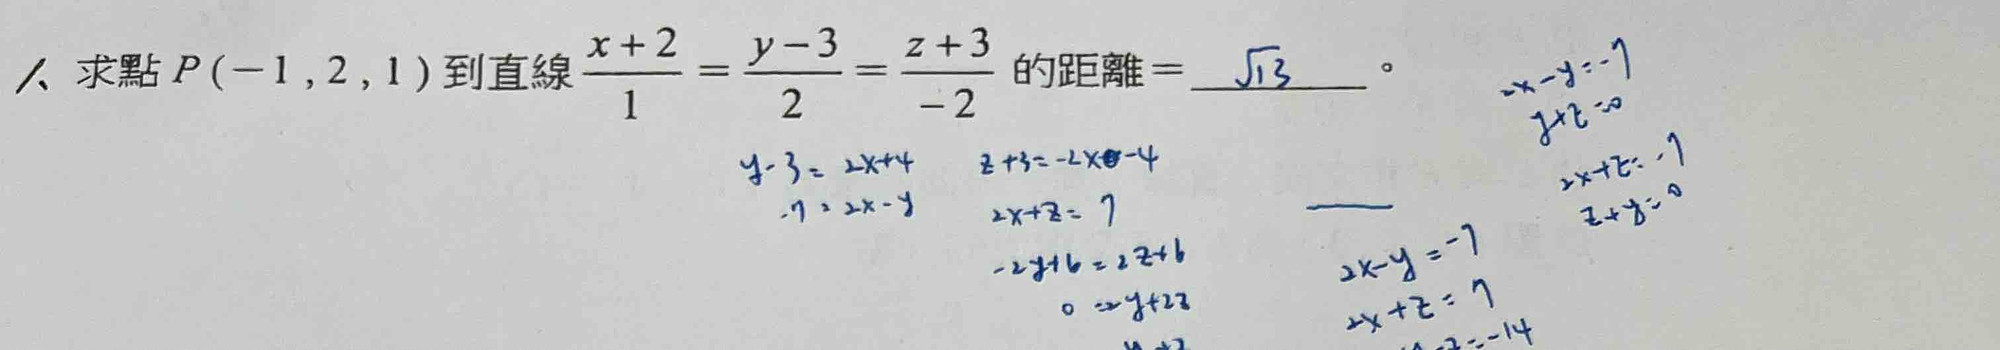 1. 求點 P(-1, 2, 1) 到直線 (x+2)/1 = (y-3)/2 = (z+3)/-2 的距離 = √13 。
y-3 = 2x+4
-7 = 2x-y
z+3 = -2x-4
2x+z = 7
-2y+6 = 2z+6
0 = 2y+2z
2x-y = -7
2x+z = 7
2x-y = -7
y+z = 0
2x+z = -7
z+y = 0